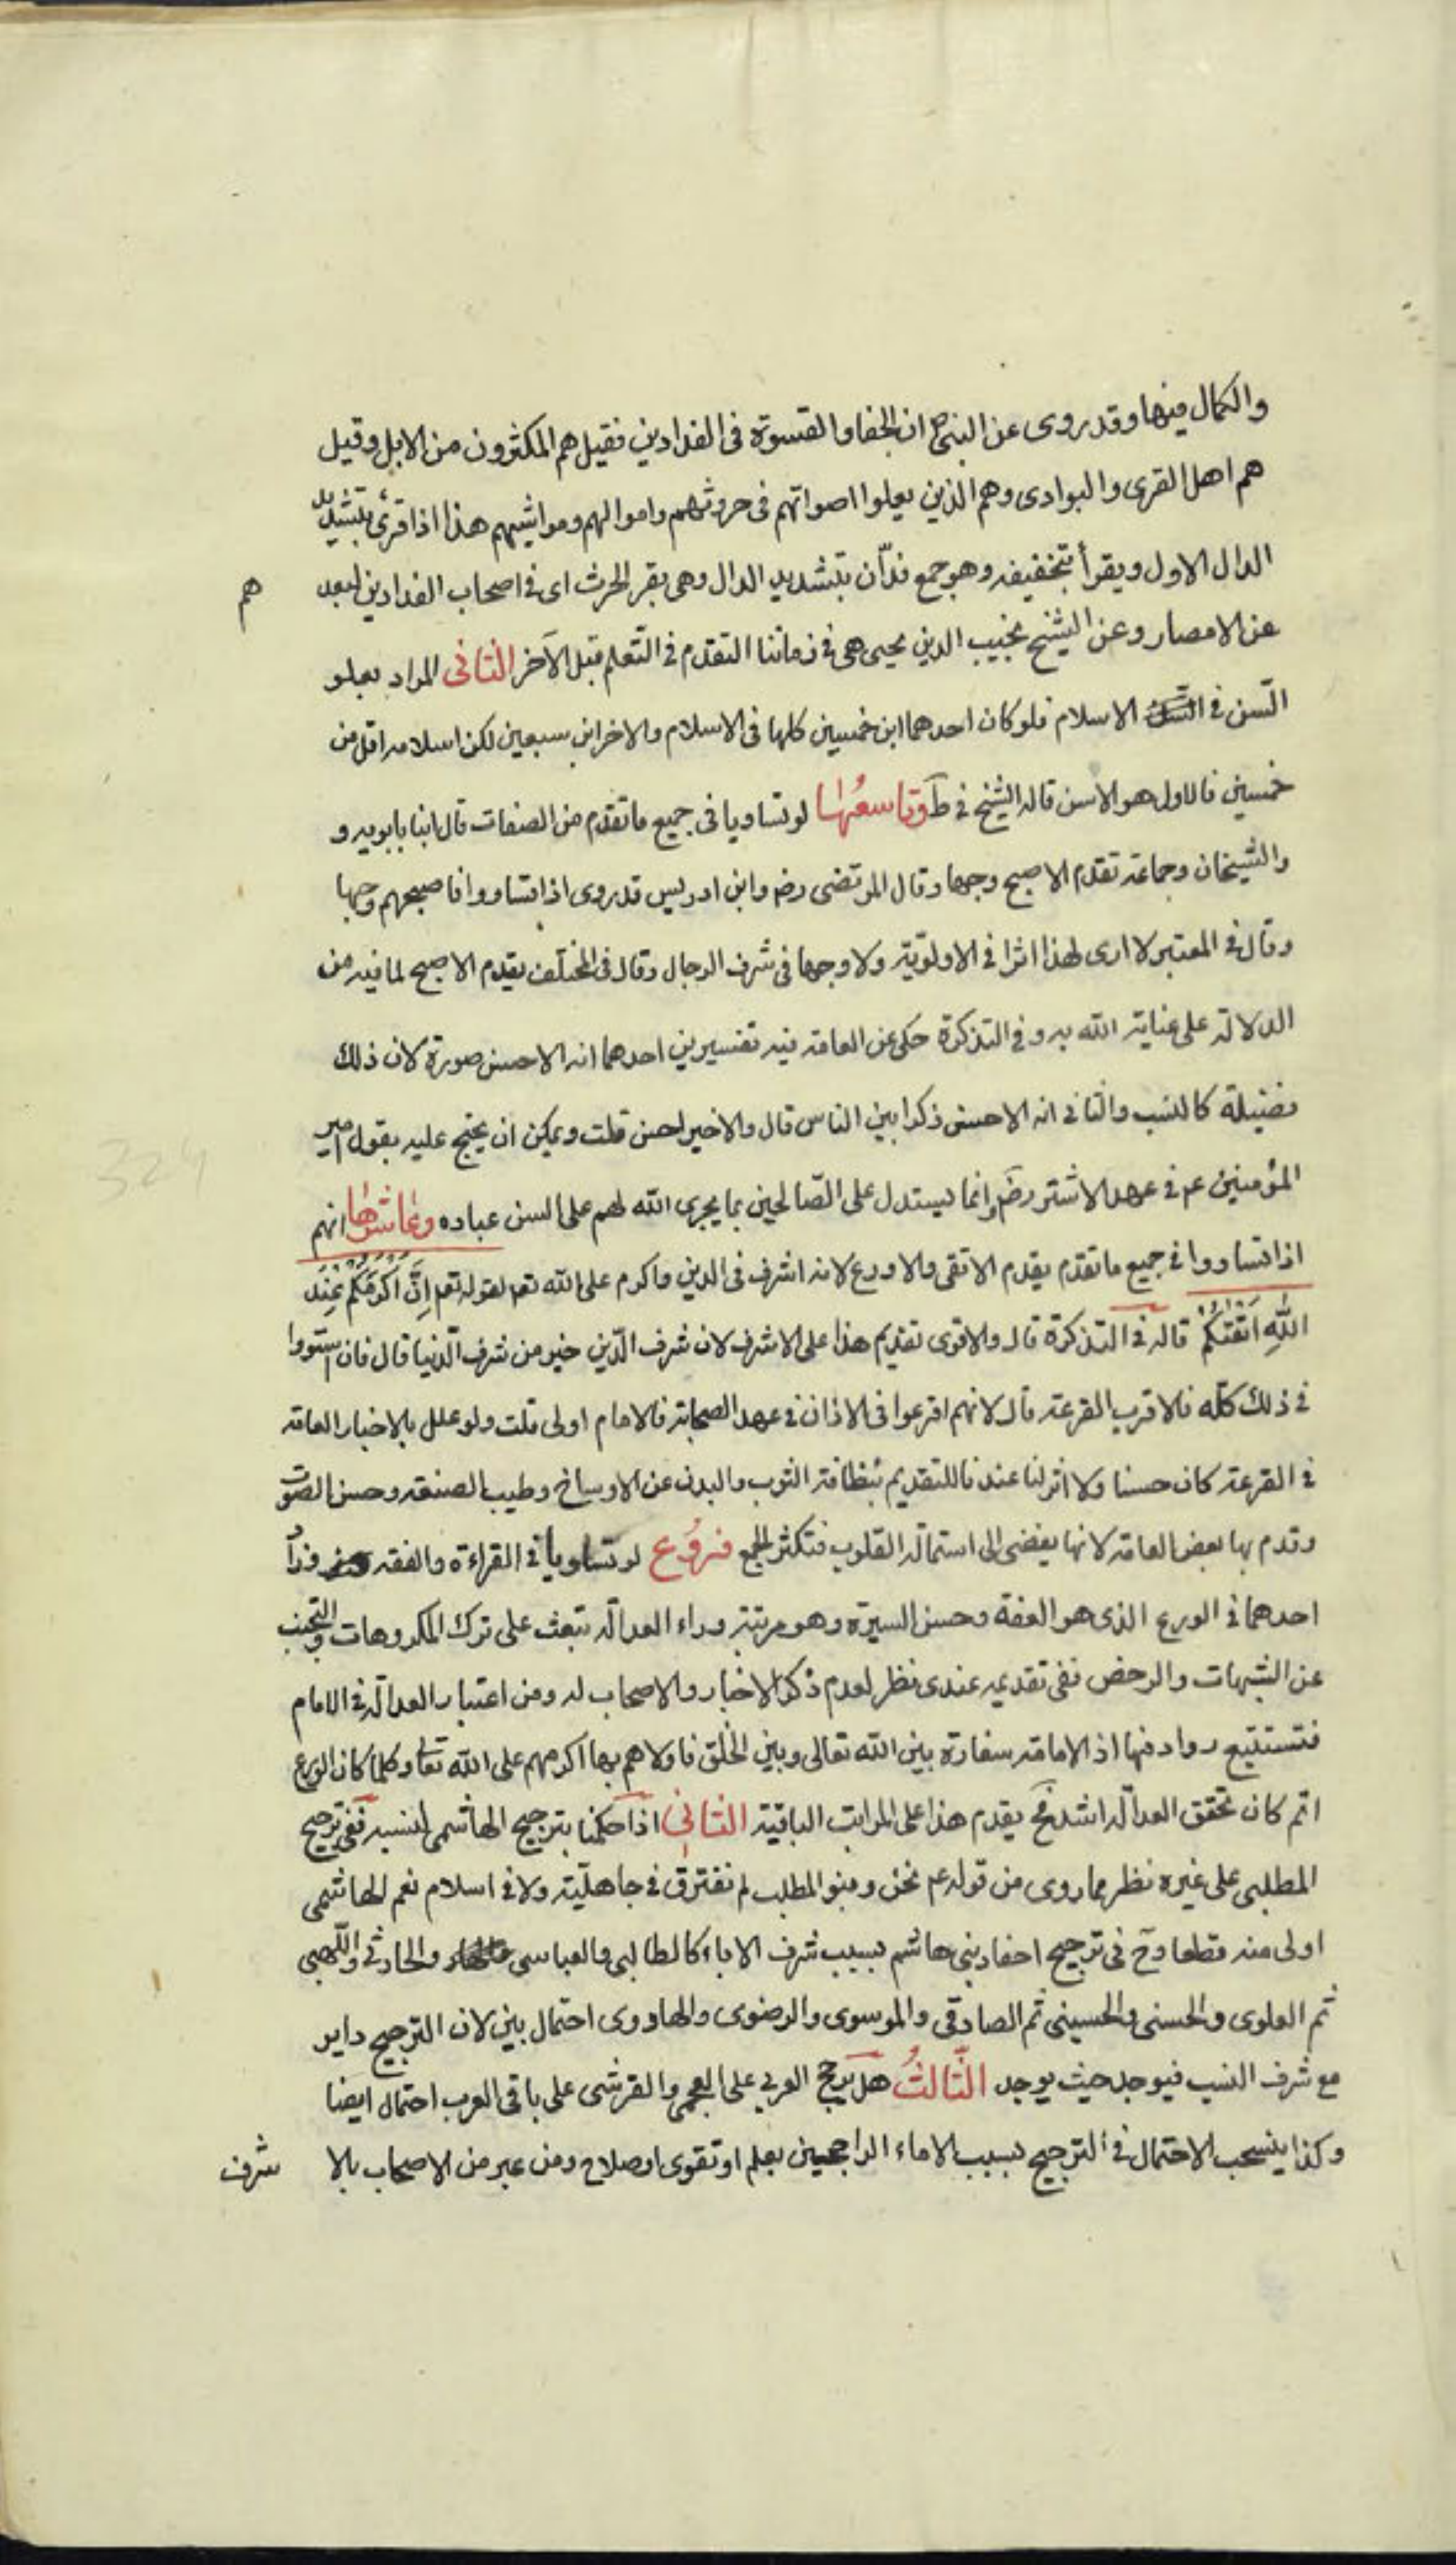 والكمال فيها وقد روى عن النبي ص ان الجفا والقسوة فى الفدادين فقيل هم المكثرون من الابل وقيل
هم اهل القرى والبوادى وهم الذين يعلوا اصواتهم فى حروثهم واموالهم ومواشيهم هذا اذا قرئ بتشديد
الدال الاول ويقرأ بتخفيفه وهو جمع فدّان بتشديد الدال وهى بقر الحرث اى فى اصحاب الفدادين لبعد هم
عن الامصار وعن الشيخ نجيب الدين يحيى هى فى زماننا التقدم فى التّعلم قبل الآخر الثانى المراد بعلو
السّن فى الاسلام فلو كان احدهما ابن خمسين كلها فى الاسلام والاخر ابن سبعين لكن اسلامه اقل من
خمسين فالاول هو الاسن قاله الشيخ فى ط وتاسعها لو تساويا فى جميع ما تقدم من الصفات قال ابنا بابويه و
والشيخان وجماعة تقدم الاصبح وجها وقال المرتضى رضه وابن ادريس قد روى اذا تساووا فاصبحهم وجها
وقال فى المعتبر لا ارى لهذا اثرا فى الاولويّة ولا وجها فى شرف الرجال وقال فى المختلف يقدم الاصبح لما فيه من
الدلالة على عناية الله به وفى التذكرة حكى عن العامة فيه تفسيرين احدهما انه الاحسن صورة لان ذلك
فضيلة كالنسب والثانى انه الاحسن ذكرا بين الناس قال والاخير احسن قلت ويمكن ان يحتج عليه بقول امير
المؤمنين عم فى عهد الاشتر رضه وانما يستدل على الصّالحين بما يجرى الله لهم على السن عباده وعاشرها انهم
اذا تساووا فى جميع ما تقدم يقدم الاتقى والاورع لانه اشرف فى الدين واكرم على الله تعم لقوله تعم اِنَّ اَكْرَمَكُمْ عِنْدَ
اللّٰهِ اَتْقٰيكُمْ قاله فى التذكرة قال والاقوى تقديم هذا على الاشرف لان شرف الدّين خير من شرف الدّنيا قال فان استووا
فى ذلك كلّه فالاقرب القرعة قال لانهم اقرعوا فى الاذان فى عهد الصحابة فالامام اولى قلت ولو علل بالاخبار العامة
فى القرعة كان حسنا ولا اثر لنا عندنا للتقديم بنظافة الثوب والبدن عن الاوساخ وطيب الصنعة وحسن الصوت
وقدم بها بعض العامة لانها يفضى الى استمالة القلوب فتكثر الجمع فروع لو تساويا فى القراءة والفقه وزاد
احدهما فى الورع الذى هو العفة وحسن السيرة وهو مرتبة وراء العدالة تبعث على ترك المكروهات والتجنب
عن الشبهات والرخص ففى تقديمه عندى نظر لعدم ذكر الاخبار والاصحاب له ومن اعتبار العدالة فى الامام
فتستتبع روادفها اذ الامامة سفارة بين الله تعالى وبين الخلق فاولاهم بها اكرمهم على الله تعا وكلما كان الورع
اتم كان تحقق العدالة اشد فح يقدم هذا على المراتب الباقية الثانى اذا حكمنا بترجيح الهاشمى لنسبه ففى ترجيح
المطلبى على غيره نظر مما روى من قوله عم نحن وبنو المطلب لم نفترق فى جاهليّة ولا فى اسلام نعم الهاشمى
اولى منه قطعا وح فى ترجيح احفاد بنى هاشم بسبب شرف الاباء كالطالبى والعباسى والحارثى واللّهبى
ثم العلوى والحسنى والحسينى ثم الصادقى والموسوى والرضوى والهادوى احتمال بين لان الترجيح داير
مع شرف النسب فيوجد حيث يوجد الثّالثُ هل يرجح العربى على العجمى والقرشى على باقى العرب احتمال ايضا
وكذا ينسحب الاحتمال فى الترجيح بسبب الاباء الراجحين بعلم او تقوى او صلاح ومن عبر من الاصحاب بالا شرف